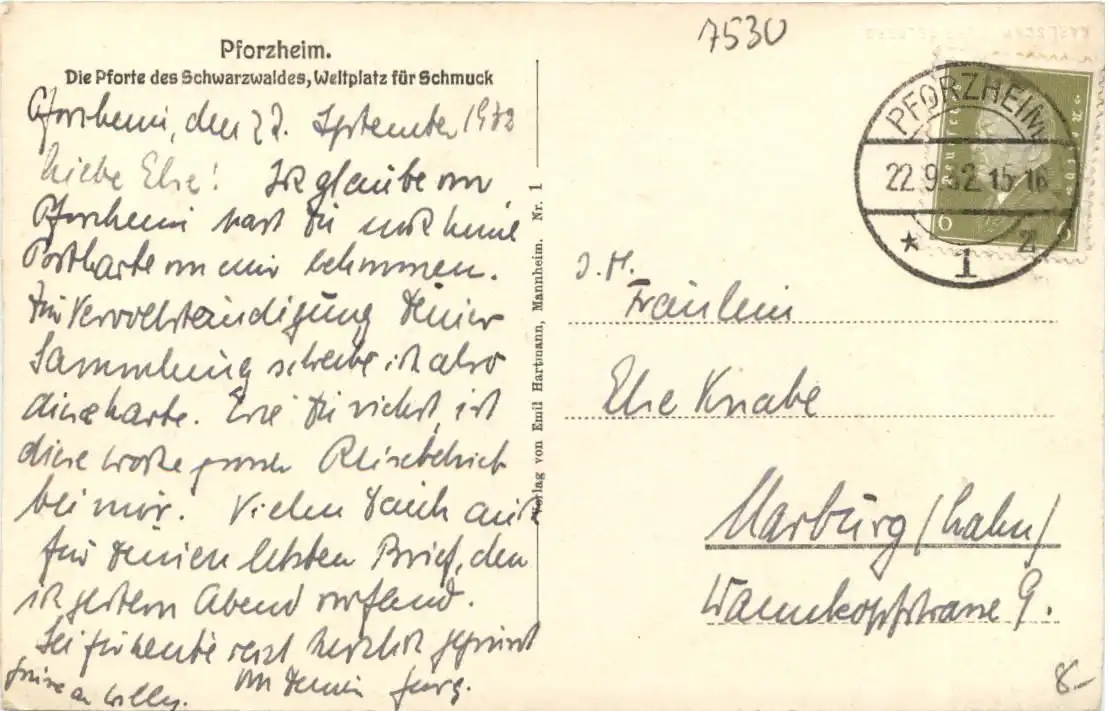 7530
Pforzheim.
Die Pforte des Schwarzwaldes, Weltplatz für Schmuck
Pforzheim, den 22. September 1932
Liebe Else! Ich glaube von
Pforzheim hast Du noch keine
Postkarte von mir bekommen.
Zur Vervollständigung Deiner
Sammlung schreibe ich also
diese Karte. Du siehst, ist
diese Woche grosser Reisebetrieb
bei mir. Vielen Dank auch
für Deinen letzten Brief, den
ich gestern Abend vorfand.
Sei für heute recht herzlich gegrüsst
von Deinem
Grüsse an Willy.
Verlag von Emil Hartmann, Mannheim. Nr. 1
PFORZHEIM
22.9.32.15-16
* 1 2f
Deutsches Reich
6 6
Fräulein
Else Knabe
Marburg/Lahn/
Wannkopfstrasse 9.
8.-